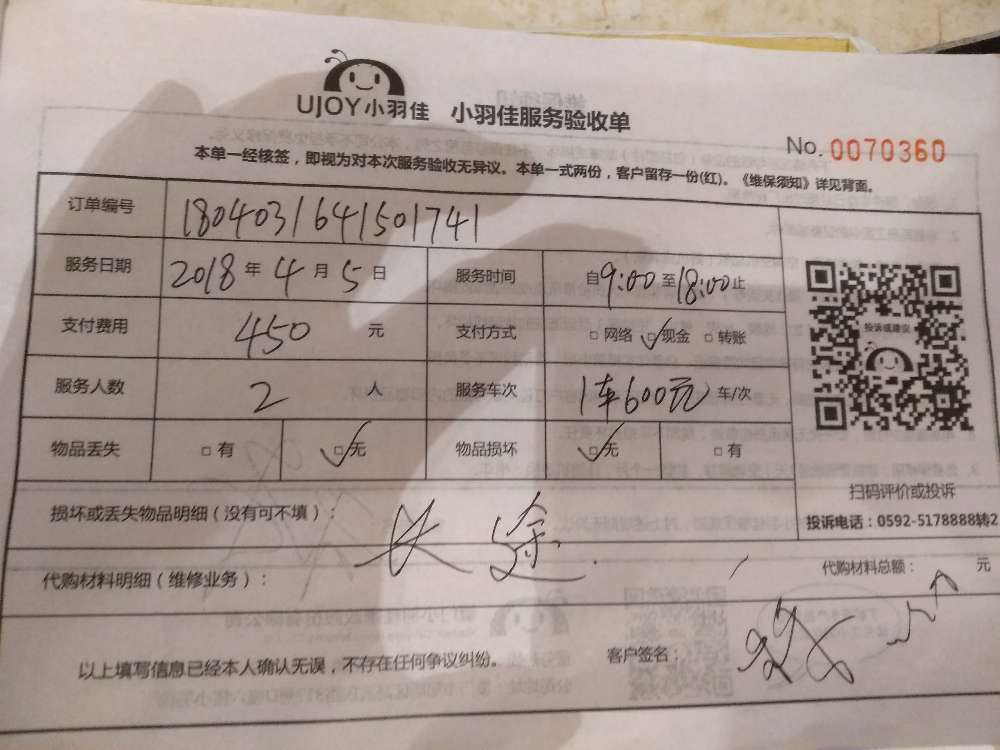 UJOY小羽佳 小羽佳服务验收单
No. 0070360
本单一经核签，即视为对本次服务验收无异议。本单一式两份，客户留存一份(红)。《维保须知》详见背面。
订单编号 1804031641501741
服务日期 2018 年 4 月 5 日 服务时间 自9:00至18:00止
支付费用 450 元 支付方式 □ 网络 ☑现金 □ 转账
投诉或建议
服务人数 2 人 服务车次 1车600元 车/次
物品丢失 □ 有 ☑无 物品损坏 ☑无 □ 有
扫码评价或投诉
损坏或丢失物品明细（没有可不填）：
投诉电话：0592-5178888转2
长途
代购材料明细（维修业务）： 代购材料总额： 元
以上填写信息已经本人确认无误，不存在任何争议纠纷。 客户签名：